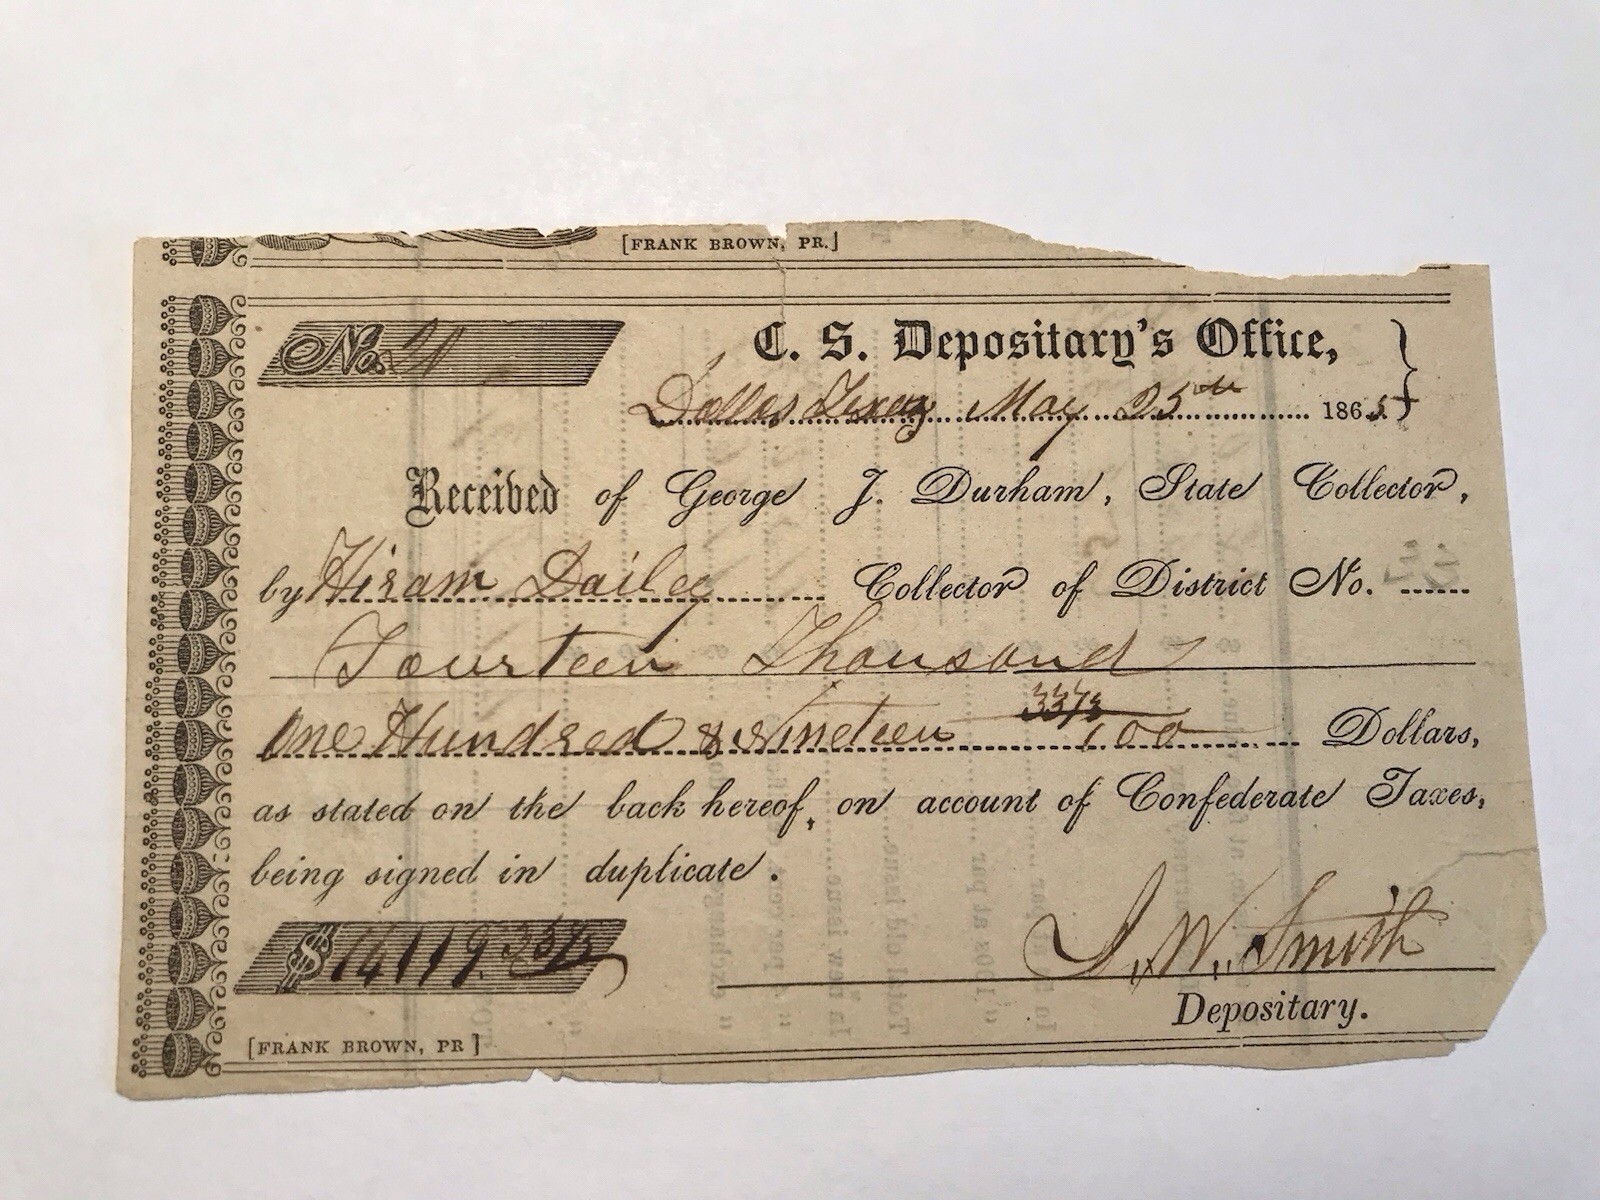 [FRANK BROWN, PR.]
No. 21
C. S. Depositary's Office,
Dallas Texas May 25th 1865
Received of George J. Durham, State Collector,
by Hiram Dailey Collector of District No.
Fourteen Thousand
One Hundred & Nineteen 33⅓/100 Dollars,
as stated on the back hereof, on account of Confederate Taxes,
being signed in duplicate.
$14119.
J. W. Smith
Depositary.
[FRANK BROWN, PR]